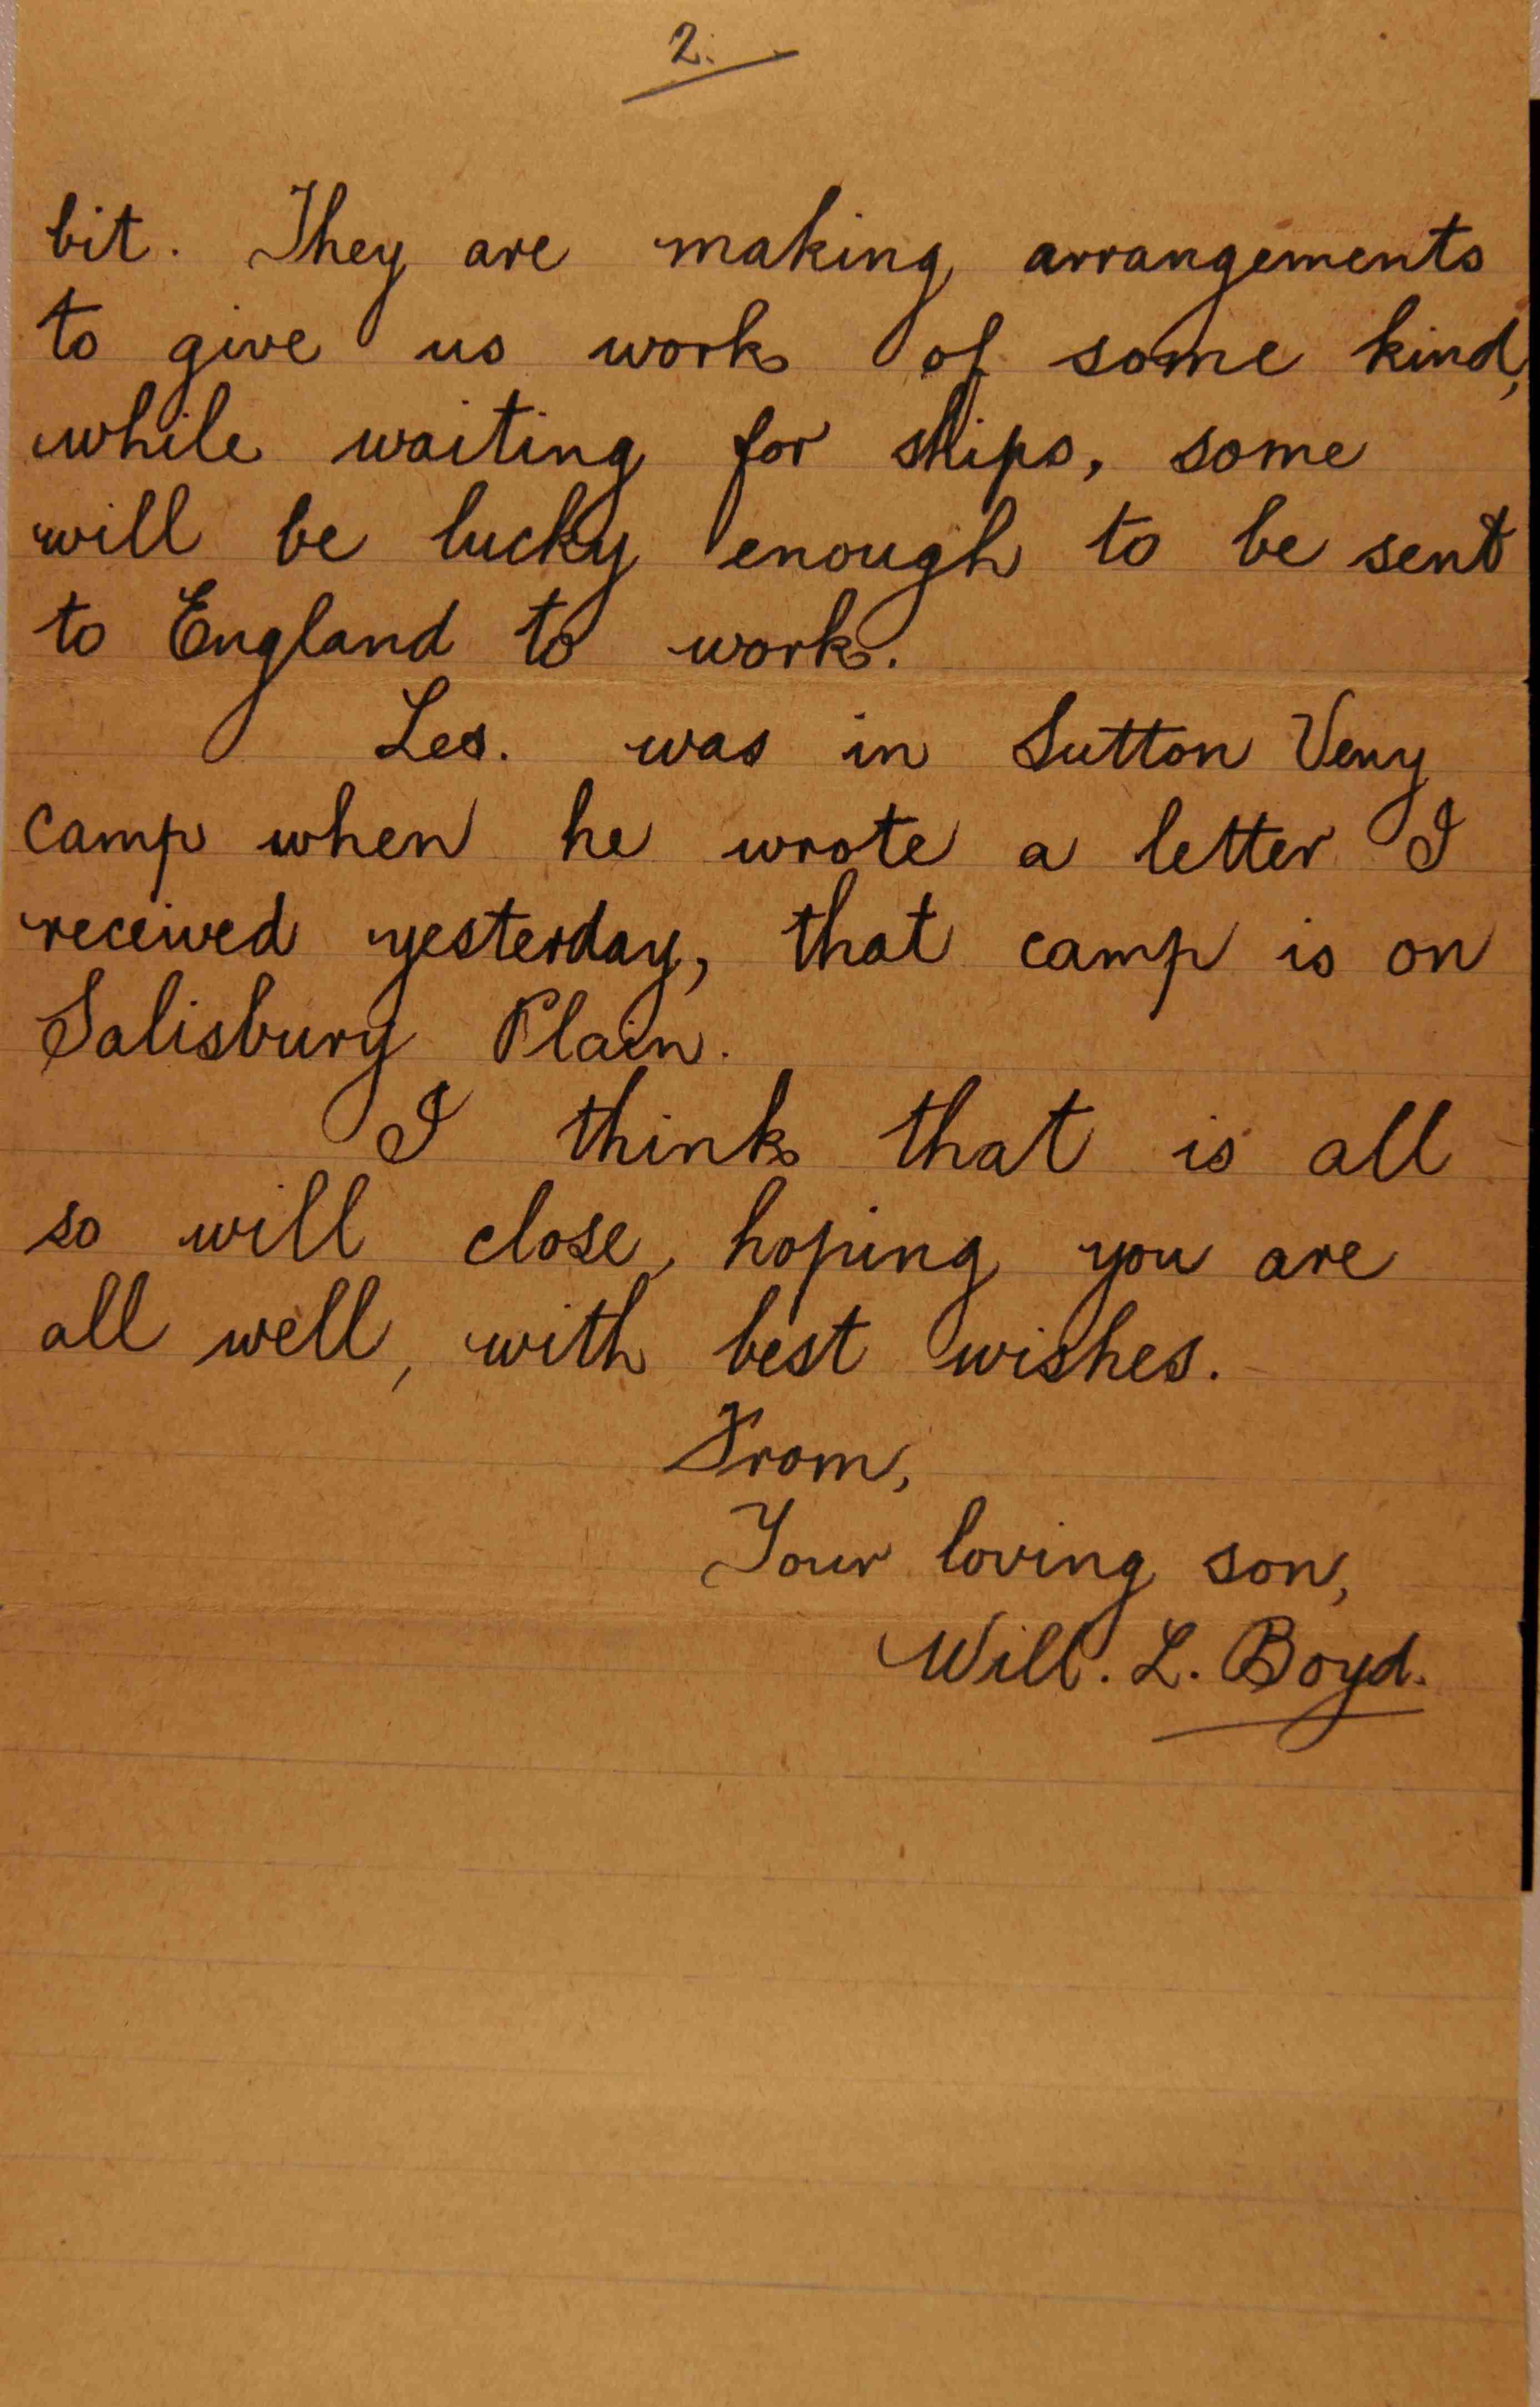 2.
bit. They are making arrangements
to give us work of some kind,
while waiting for ships, some
will be lucky enough to be sent
to England to work.
Les. was in Sutton Veny
camp when he wrote a letter I
received yesterday, that camp is on
Salisbury Plain.
I think that is all
so will close, hoping you are
all well, with best wishes.
From,
Your loving son,
Will. L. Boyd.